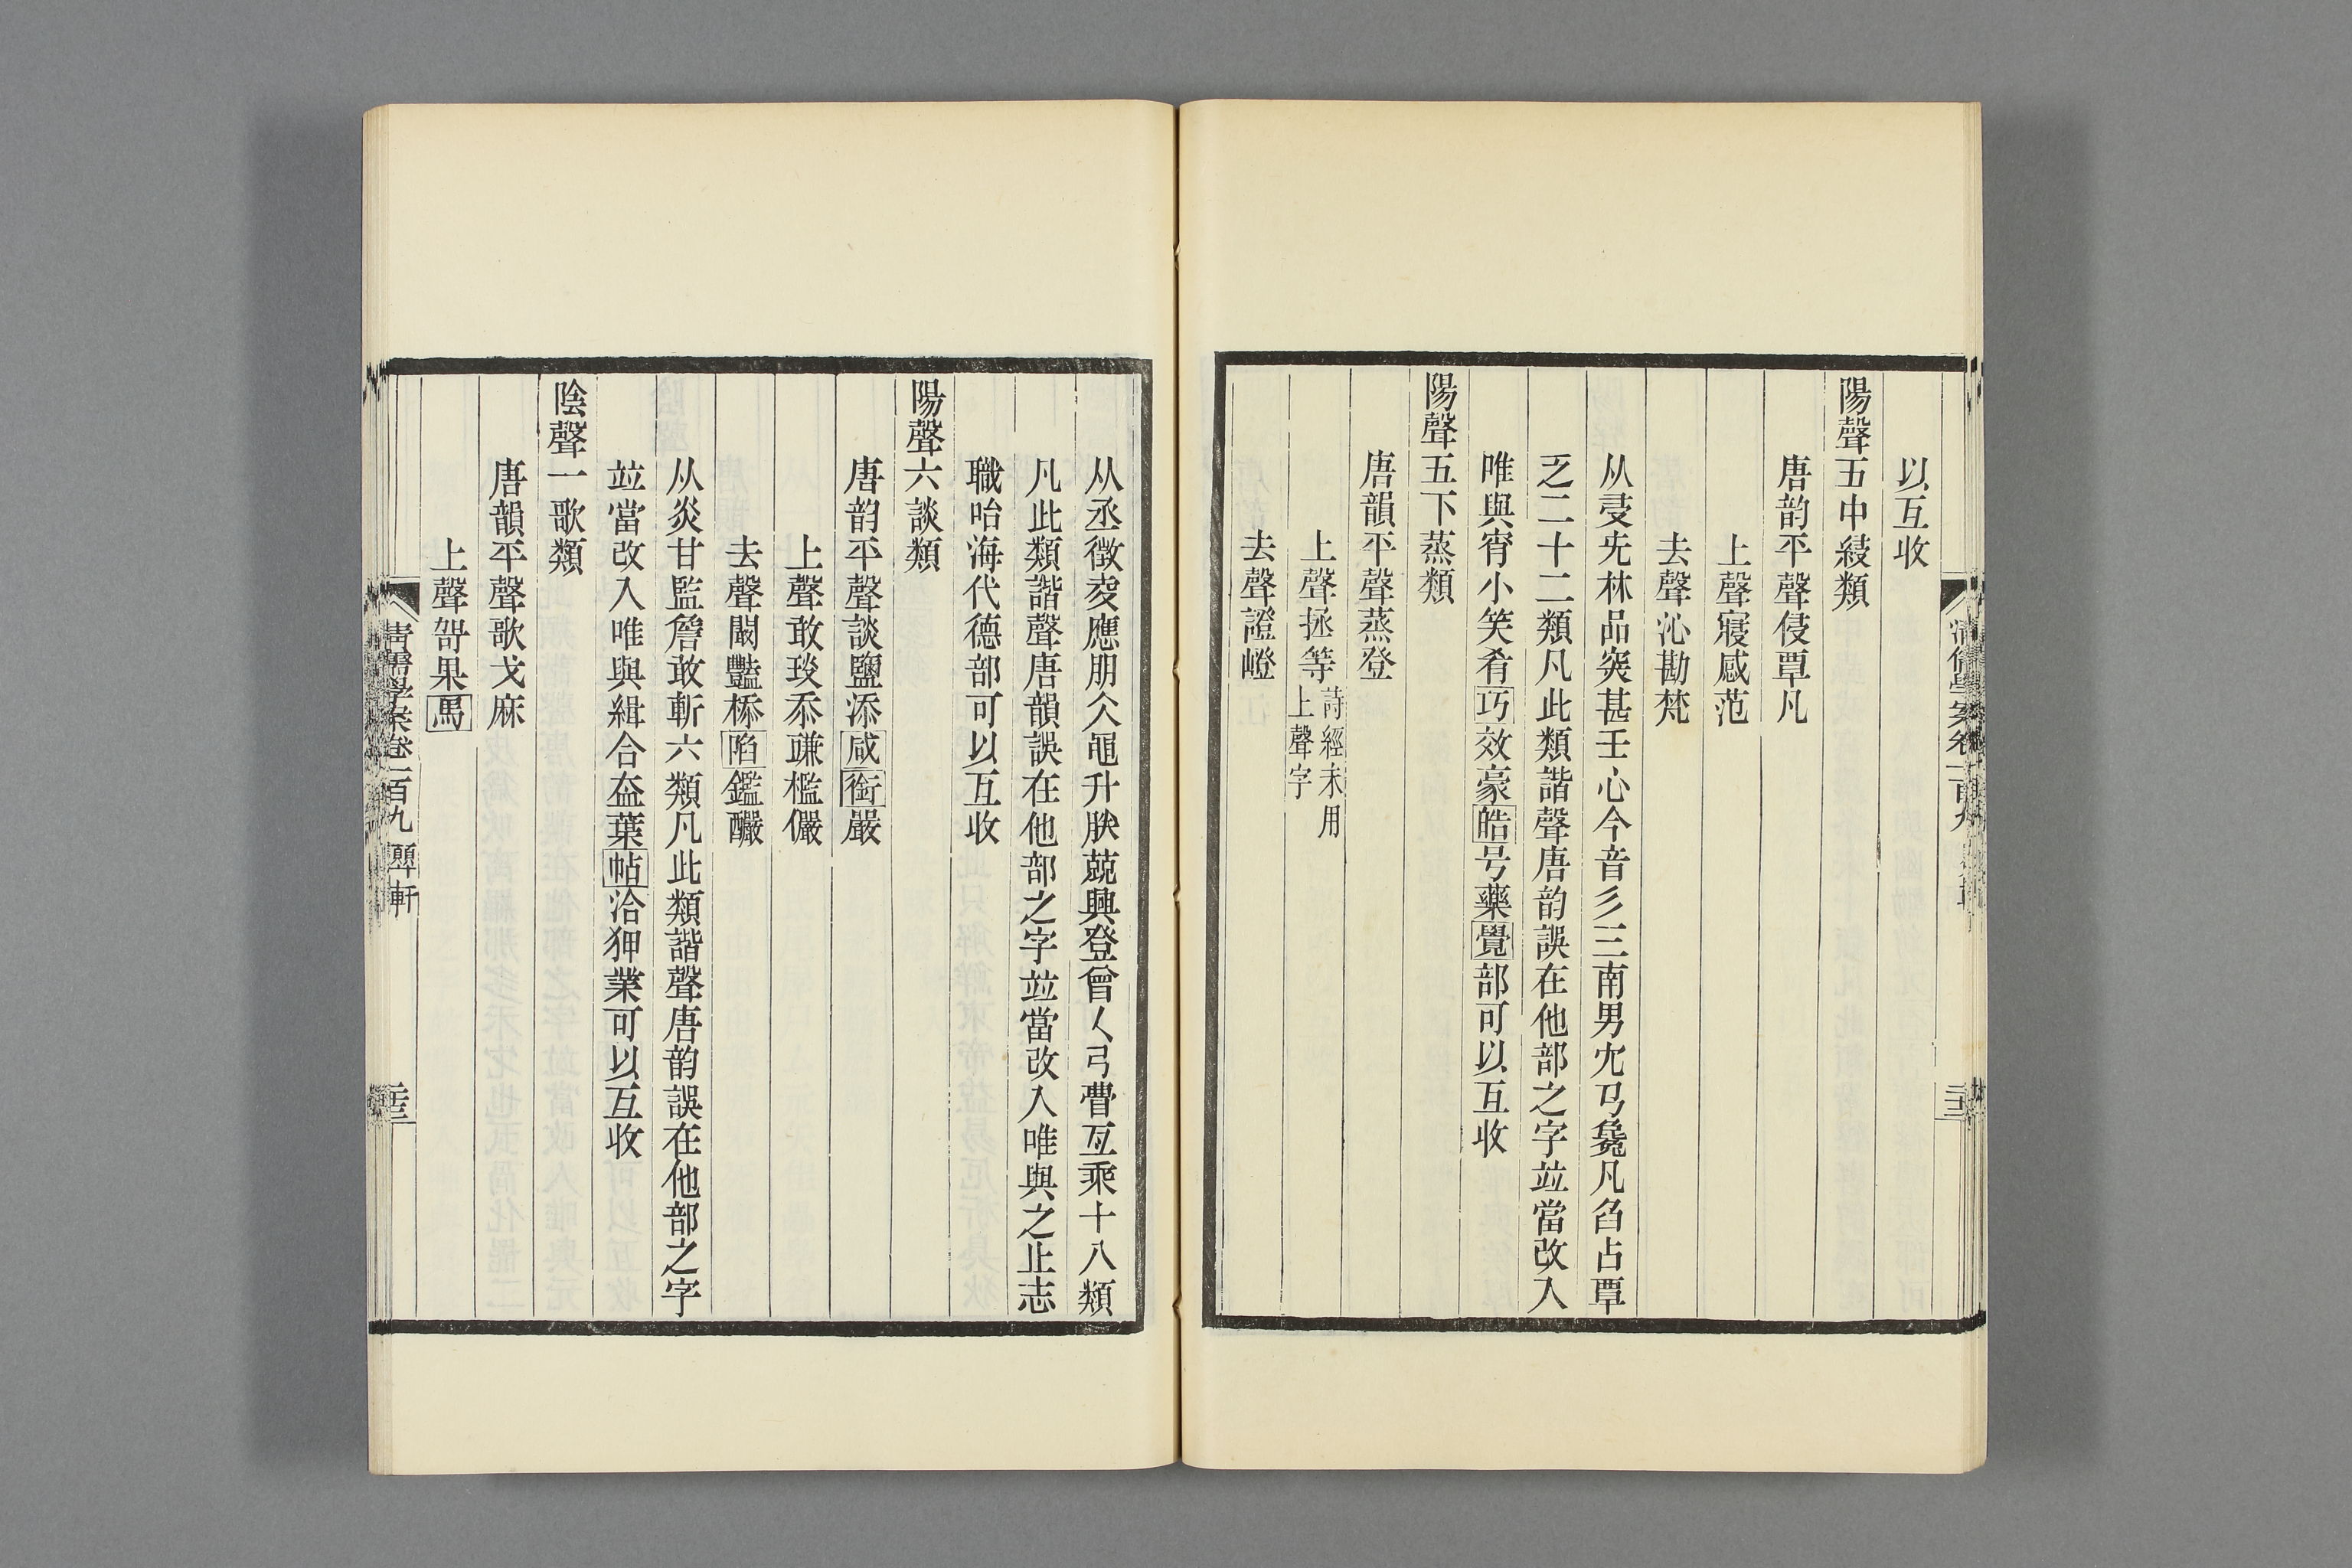 以互收
陽聲五中緩類
唐韵平聲侵覃凡
上聲寑感范
去聲沁勘梵
从㑴兂林品突甚壬心今音彡三南男冘马毚凡臽占覃
乏二十二類凡此類諧聲唐韵誤在他部之字竝當改入
唯與宵小笑肴巧效豪皓号藥覺部可以互收
陽聲五下蒸類
唐韻平聲蒸登
上聲拯等詩經未用上聲字
去聲證嶝
从丞徵夌應朋仌黽升朕兢興登曾厶弓瞢亙乘十八類
凡此類諧聲唐韻誤在他部之字竝當改入唯與之止志
職咍海代德部可以互收
陽聲六談類
唐韵平聲談鹽添咸銜嚴
上聲敢琰忝豏檻儼
去聲闞豔㮇陷鑑釅
从炎甘監詹敢斬六類凡此類諧聲唐韵誤在他部之字
竝當改入唯與緝合盍葉帖洽狎業可以互收
陰聲一歌類
唐韻平聲歌戈麻
上聲哿果馬
清儒學案卷一百九 顨軒